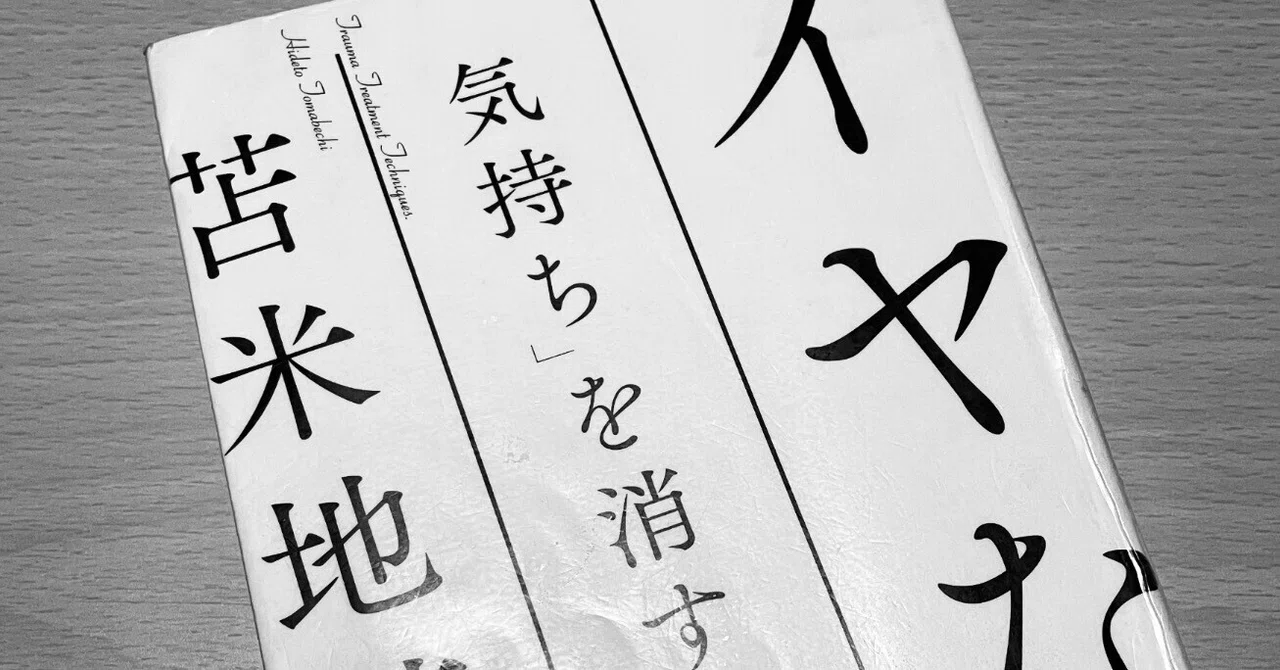 イヤな
気持ち」を消す
Trauma Treatment Techniques.
Hideto Tomabechi
苫米地